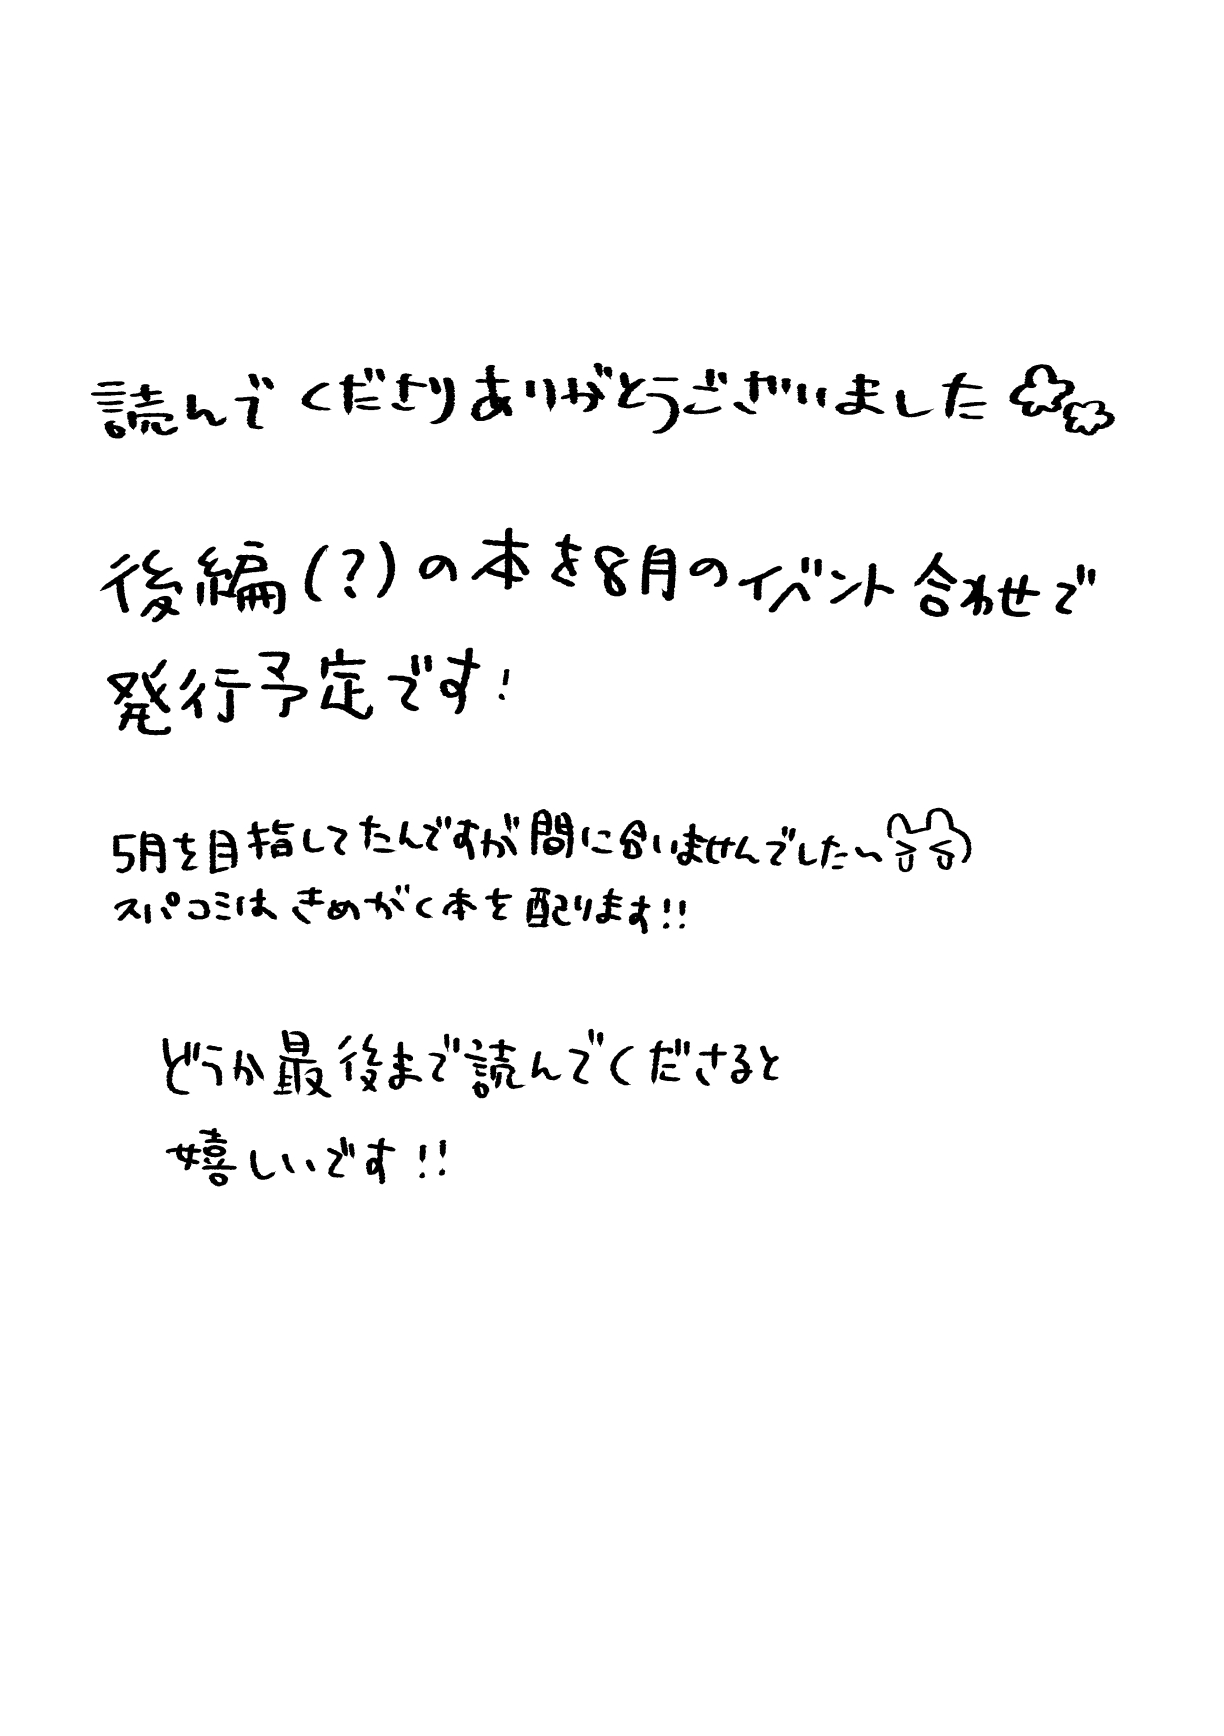 読んでくださりありがとうございました
後編(?)の本を8月のイベント合わせで
発行予定です!
5月を目指してたんですが間に合いませんでした〜
スパコミはきめがく本を配ります!!
どうか最後まで読んでくださると
嬉しいです!!